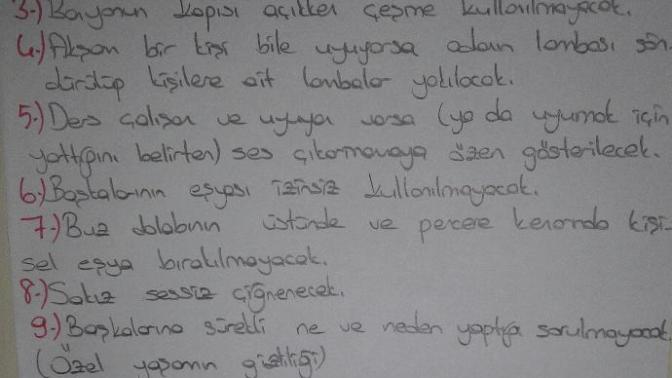 3-) Banyonun kapısı açıkken çeşme kullanılmayacak.
4-) Akşam bir kişi bile uyuyorsa odanın lambası sön-
dürülüp kişilere ait lambalar yakılacak.
5-) Ders çalışan ve uyuyan varsa (ya da uyumak için
yattığını belirten) ses çıkarmamaya özen gösterilecek.
6-) Başkalarının eşyası izinsiz kullanılmayacak.
7-) Buz dolabının üstünde ve pencere kenarında kişi-
sel eşya bırakılmayacak.
8-) Sakız sessiz çiğnenecek.
9-) Başkalarına sürekli ne ve neden yaptığı sorulmayacak
(Özel yaşamın gizliliği)